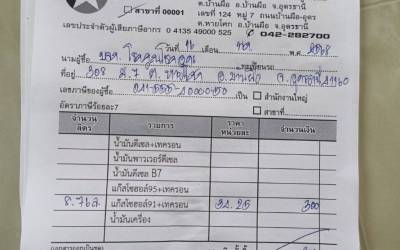 ต.บ้านผือ อ.บ้านผือ จ.อุดรธานี
สาขาที่ 00001
เลขที่ 124 หมู่ 7 ถนนบ้านผือ-อุดร
ต.หายโศก อ.บ้านผือ จ.อุดรธานี
เลขประจำตัวผู้เสียภาษีอากร 0 4135 49000 525
042-282700
วันที่ 16 เดือน พ.ศ. 2568
นามผู้ซื้อ
ที่อยู่ 208 ม.7 ต. อ.บ้านผือ จ.อุดรธานี 41160
เลขภาษีของผู้ซื้อ เป็น สำนักงานใหญ่
อัตราภาษีร้อยละ7 สาขาที่
จำนวนลิตร รายการ ราคาหน่วยละ จำนวนเงิน
น้ำมันดีเซล+เทครอน
น้ำมันพาวเวอร์ดีเซล
น้ำมันดีเซล B7
แก๊สโซฮอล์95+เทครอน
8.76ล. แก๊สโซฮอล์91+เทครอน 34.25 300
น้ำมันเครื่อง